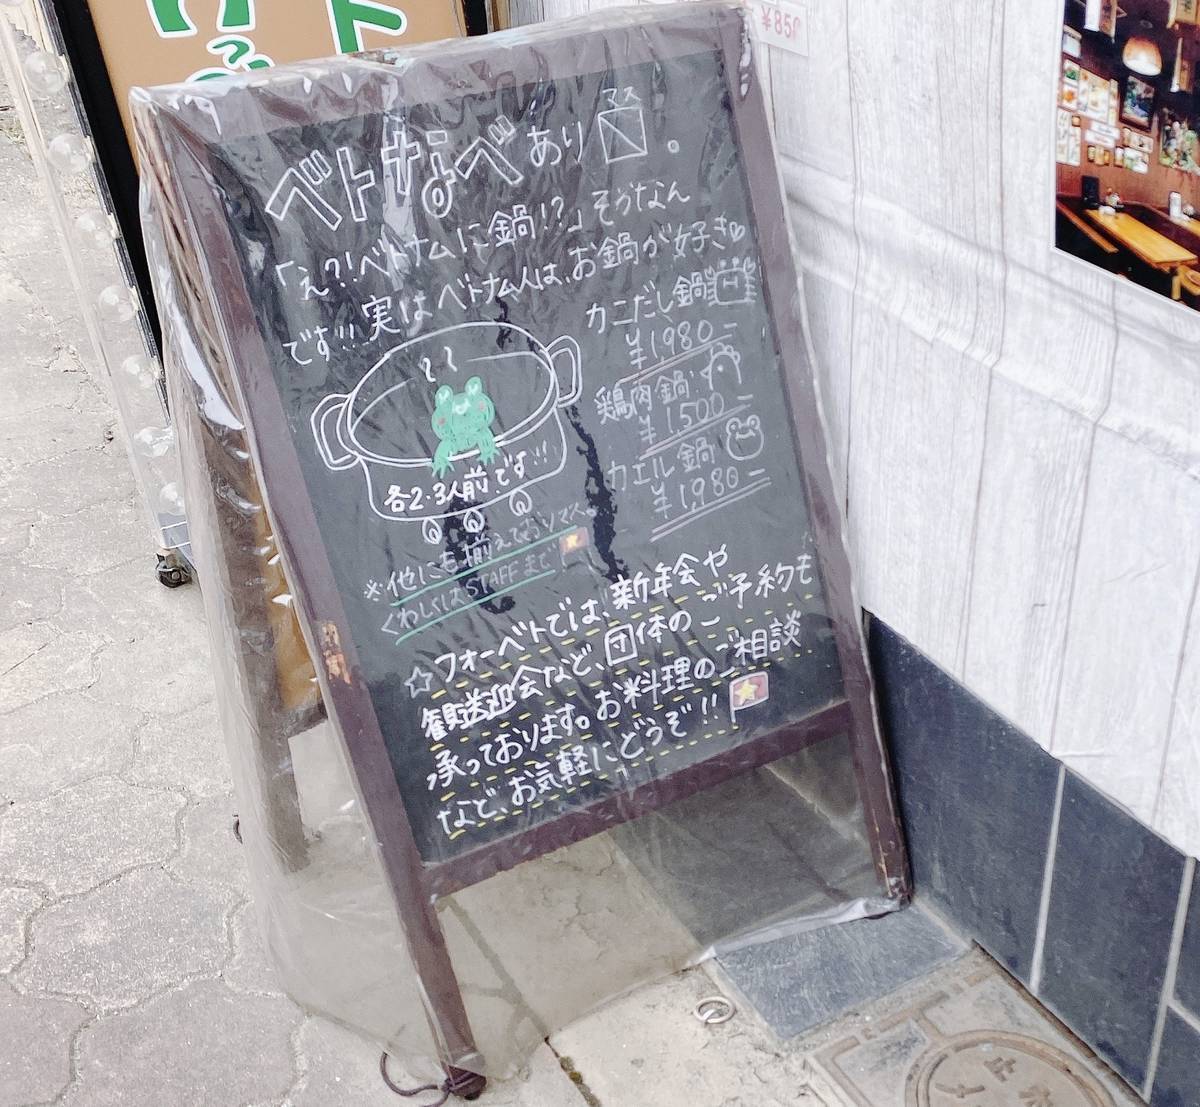 ベトなべあり〼。
マス
「え?!ベトナムに鍋!?」そうなん
です!!実はベトナム人は、お鍋が好き♡
カニだし鍋
¥1,980-
鶏肉鍋
¥1,500-
カエル鍋
¥1,980-
各2・3人前です!!
※他にも揃えておりマス。
くわしくはSTAFFまで
☆フォーベトでは、新年会や
歓送迎会など、団体のご予約も
承っております。お料理のご相談
など、お気軽にどうぞ!!
¥850